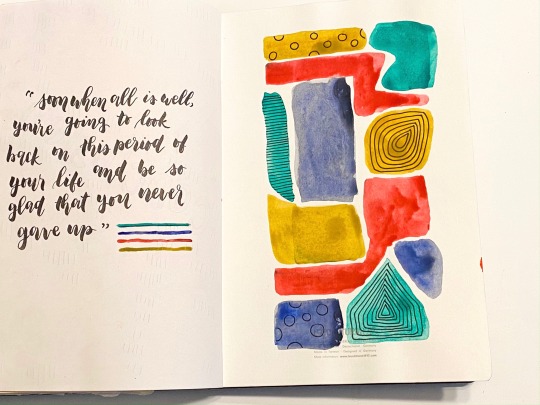 "soon when all is well,
you're going to look
back on this period of
your life and be so
glad that you never
gave up"